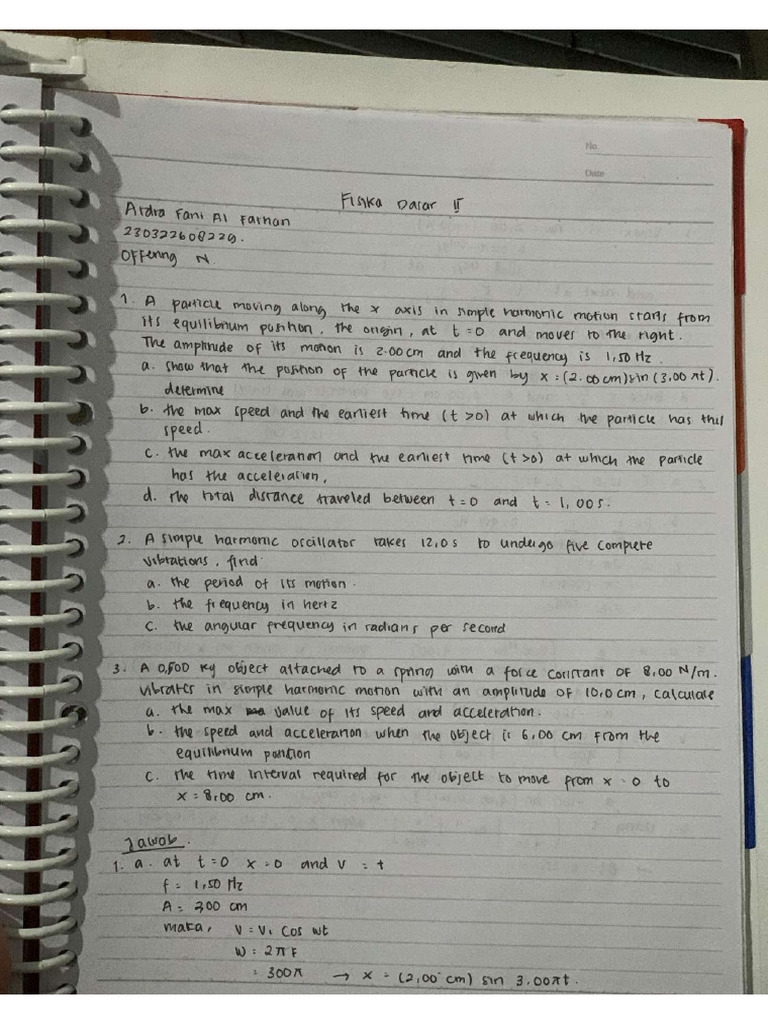 No.
Date
Fisika Dasar II
Ardra Fani Al Farhan
230322608229.
Offering N.
1. A particle moving along the x axis in simple harmonic motion starts from
its equilibrium position, the origin, at t=0 and moves to the right.
The amplitude of its motion is 2.00 cm and the frequency is 1,50 Hz.
a. show that the position of the particle is given by x = (2.00 cm) sin (3.00 πt).
determine
b. the max speed and the earliest time (t >0) at which the particle has this
speed.
c. the max acceleration and the earliest time (t >0) at which the particle
has the acceleration,
d. the total distance traveled between t=0 and t= 1,00 s.
2. A simple harmonic oscillator takes 12,0 s to undergo five complete
vibrations, find
a. the period of its motion.
b. the frequency in hertz
c. the angular frequency in radians per second
3. A 0,500 kg object attached to a spring with a force constant of 8,00 N/m.
vibrates in simple harmonic motion with an amplitude of 10,0 cm, calculate
a. the max value of its speed and acceleration.
b. the speed and acceleration when the object is 6,00 cm from the
equilibrium position
c. the time interval required for the object to move from x = 0 to
x = 8,00 cm.
Jawab.
1. a. at t=0 x=0 and v = +
f = 1,50 Hz
A = 200 cm
maka, v = vi cos wt
w = 2πf
= 300π → x = (2,00 cm) sin 3.00πt.